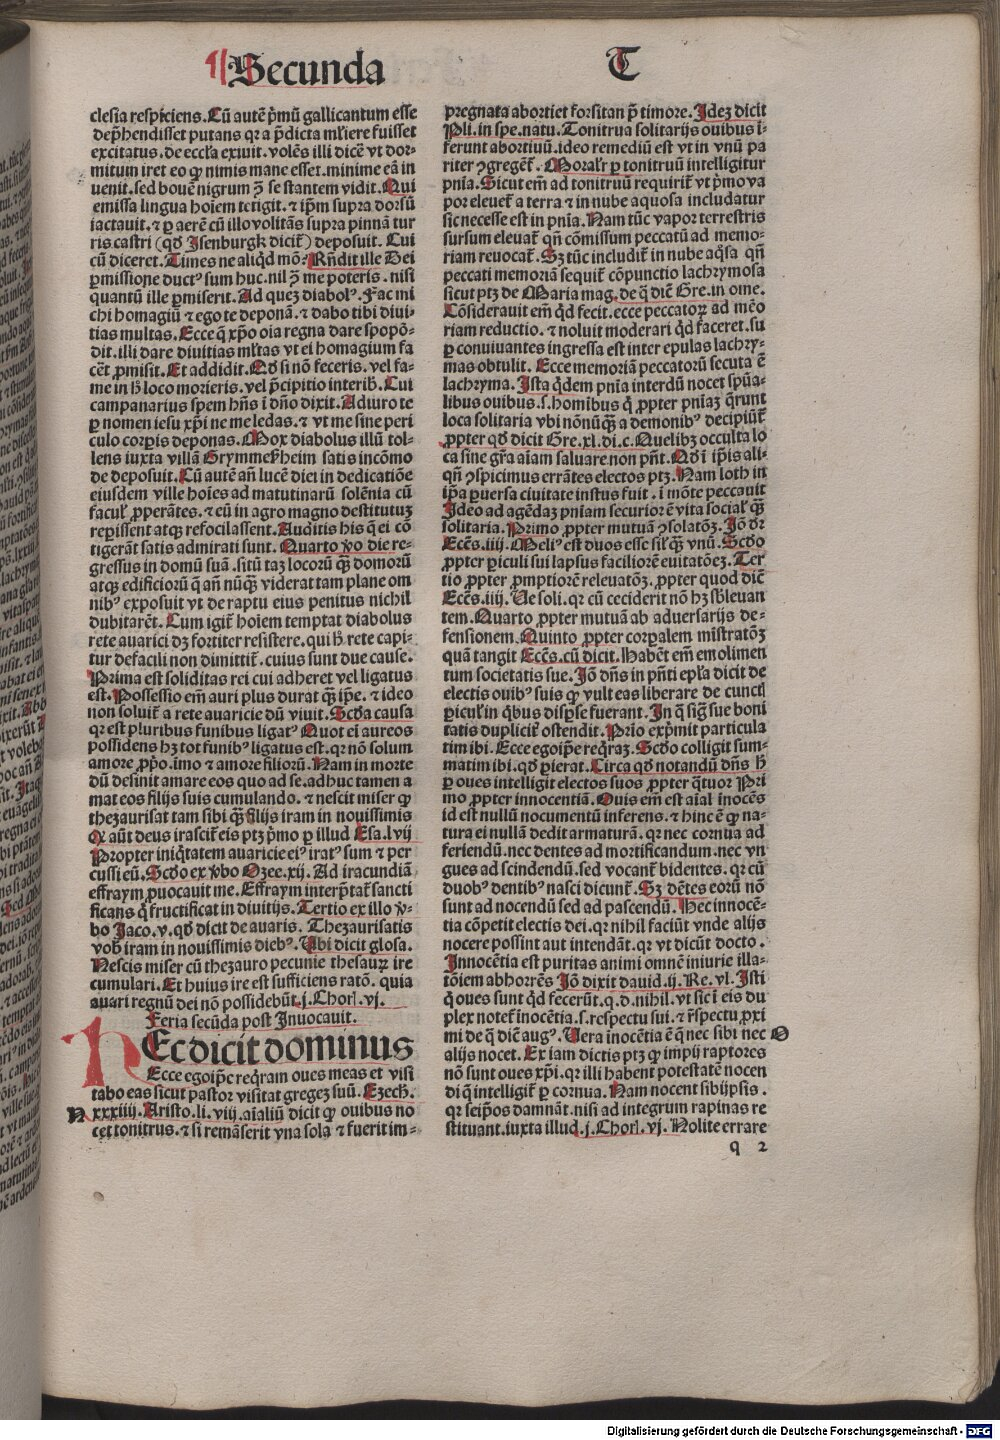 ¶ Secunda T
clesia respiciens. Cũ autẽ p̃mũ gallicantum esse
dep̃hendisset putans qr a p̃dicta mĺiere fuisset
excitatus. de eccĺia exiuit. volẽs illi dicẽ vt dor⸗
mitum iret eo ꝙ nimis mane esset. minime eã in
uenit. sed bouẽ nigrum corã se stantem vidit. Qui
emissa lingua hoĩem tetigit. ⁊ ip̃m supra dorsũ
iactauit. ⁊ ꝑ aerẽ cũ illo volitãs supra pinnã tur
ris castri (qd̕ Isenburgk dicit̃) deposuit. Cui
cũ diceret. Times ne aliqd̕ mõ? Rñdit ille Dei
ꝑmissione duct⁹ sum huc. nil ꝫ me poteris. nisi
quantũ ille ꝑmiserit. Ad quez diabol⁹. Fac mi
chi homagiũ ⁊ ego te deponã. ⁊ dabo tibi diui⸗
tias multas. Ecce q̃ xp̃o oia regna dare spopõ⸗
dit. illi dare diuitias mĺtas vt ei homagium fa
cẽt ꝓmisit. Et addidit. Qd̕ si nõ feceris. vel fa⸗
me in h̕ loco morieris. vel p̃cipitio interib̕. Cui
campanarius spem hñs ĩ dño dixit. Adiuro te
ꝑ nomen iesu xp̃i ne me ledas. ⁊ vt me sine peri
culo corꝑis deponas. Mox diabolus illũ tol⸗
lens iuxta villã Grymmeßheim satis incõmo
de deposuit. Cũ autẽ añ lucẽ diei in dedicatiõe
eiusdem ville hoĩes ad matutinarũ solẽnia cũ
facuĺ ꝓperãtes. ⁊ eũ in agro magno destitutuz
reperissent atqꝫ refocilassent. Auditis his q̃ ei cõ
tigerãt satis admirati sunt. Quarto ꝟo die re⸗
gressus in domũ suã. sitũ taz locorũ qꝫ̃ domorũ
atqꝫ edificiorũ q̃ añ nũqꝫ̃ viderat tam plane om
nib⁹ exposuit vt de raptu eius penitus nichil
dubitarẽt. Cum igit̃ hoĩem temptat diabolus
rete auarici dꝫ fortiter resistere. qui h̕ rete capi⸗
tur defacili non dimittit̃. cuius sunt due cause.
Prima est soliditas rei cui adheret vel ligatus
est. Possessio em̃ auri plus durat qꝫ̃ ip̃e. ⁊ ideo
non soluit̃ a rete auaricie dũ viuit. Scd̕a causa
qr est pluribus funibus ligat⁹ Quot ei aureos
possidens hꝫ tot funib⁹ ligatus est. qr nõ solum
amore ꝓp̃o. ĩmo ⁊ amore filiorũ. Nam in morte
dũ desinit amare eos quo ad se. adhuc tamen a
mat eos filijs suis cumulando. ⁊ nescit miser ꝙ
thezaurisat tam sibi qꝫ̃ filijs iram in nouissimis
Qꝫ aũt deus irascit̃ eis ptꝫ p̃mo ꝑ illud Esa. lvij
Propter iniq̃tatem auaricie ei⁹ irat⁹ sum ⁊ per
cussi eũ. Scd̕o ex ꝟbo Ozee. xij. Ad iracundiã
effraym ꝓuocauit me. Effraym interp̃tat̃ sancti
ficans q̃ fructificat in diuitijs. Tertio ex illo ꝟ⸗
bo Iaco. v. qd̕ dicit de auaris. Thezaurisatis
vob̕ iram in nouissimis dieb⁹. Ubi dicit glosa.
Nescis miser cũ thezauro pecunie thesauꝝ ire
cumulari. Et huius ire est sufficiens ratõ. quia
auari regnũ dei nõ possidebũt. j. Chorĺ. vj.
Feria secũda post Inuocauit.
HEc dicit dominus
Ecce egoip̃e req̃ram oues meas et visi
tabo eas sicut pastor visitat gregeꝫ suũ. Ezech̕.
N xxxiiij. Aristo. li. viij. aĩaliũ dicit ꝙ ouibus no
cet tonitrus. ⁊ si remãserit vna sola ⁊ fuerit im⸗
pregnata abortiet forsitan p̃ timore. Ideꝫ dicit
Pli. in spe. natu. Tonitrua solitarijs ouibus ĩ⸗
ferunt abortiuũ. ideo remediũ est vt in vnũ pa
riter ꝯgregẽt̃. Moraĺr ꝑ tonitruũ intelligitur
pñia. Sicut em̃ ad tonitruũ requirit̃ vt p̃mo va
por eleuet̃ a terra ⁊ in nube aquosa includatur
sic necesse est in pñia. Nam tũc vapor terrestris
sursum eleuat̃ qñ cõmissum peccatũ ad memo⸗
riam reuocat̃. Sꝫ tũc includit̃ in nube aq̃sa qñ
peccati memoriã sequit̃ cõpunctio lachrymosa
sicut ptꝫ de Maria mag. de q̃ diẽ Gre. in ome.
Cõsiderauit em̃ qd̕ fecit. ecce peccatoꝝ ad mẽo
riam reductio. ⁊ noluit moderari qd̕ faceret. su
ꝑ conuiuantes ingressa est inter epulas lachry⸗
mas obtulit. Ecce memoriã peccatorũ secuta ẽ
lachryma. Ista q̃dem pñia interdũ nocet spũa⸗
libus ouibus. s. homibus q̃ ꝓpter pñiaꝫ q̃runt
loca solitaria vbi nõnũq̃ꝫ a demonib⁹ decipiũt̃
ꝓpter qd̕ dicit Gre. xl. di. c. Quelibꝫ occulta lo
ca sine gr̃a aĩam saluare non pñt. Qd̕ ĩ ip̃is ali⸗
qñ ꝯspicimus errãtes electos ptꝫ. Nam loth in
ip̃a ꝑuersa ciuitate iustus fuit. ĩ mõte peccauit
Ideo ad agẽdaꝫ pñiam securior ẽ vita sociaĺ qꝫ̃
solitaria. Primo ꝓpter mutuã ꝯsolatõꝫ. Iõ dr̃
Eccs̃. iiij. Meli⁹ est duos esse siĺ qꝫ̃ vnũ. Scd̕o
ꝓpter ꝑiculi sui lapsus faciliorẽ euitatõeꝫ. Ter
tio ꝓpter ꝓmptiorẽ releuatõꝫ. ꝓpter quod diẽ
Eccs̃. iiij. Ue soli. qr cũ ceciderit nõ hꝫ sb̕leuan
tem. Quarto ꝓpter mutuã ab aduersarijs de⸗
fensionem. Quinto ꝓpter corꝑalem mĩstratõꝫ
quã tangit Eccs̃. cũ dicit. Habẽt em̃ emolimen
tum societatis sue. Iõ dñs in p̃nti ep̃la dicit de
electis ouib⁹ suis ꝙ vult eas liberare de cunctĺ
ꝑicuĺ in q̃bus disp̃se fuerant. In q̃ sig̃ sue boni
tatis duplicit̃ ostendit. Prio exp̃mit particula
tim ibi. Ecce egoip̃e req̃raꝫ. Scd̕o colligit sum⸗
matim ibi. qd̕ ꝑierat. Circa qd̕ notandũ dñs h̕
ꝑ oues intelligit electos suos ꝓpter q̃tuor Pri
mo ꝓpter innocentiã. Ouis em̃ est aĩal inocẽs
id est nullũ nocumentũ inferens. ⁊ hinc ẽ ꝙ na⸗
tura ei nullã dedit armaturã. qr nec cornua ad
feriendũ. nec dentes ad mortificandum. nec vn
gues ad scindendũ. sed vocant̃ bidentes. qr cũ
duob⁹ dentib⁹ nasci dicunt̃. Sꝫ dẽtes eorũ nõ
sunt ad nocendũ sed ad pascendũ. Hec innocẽ⸗
tia cõpetit electis dei. qr nihil faciũt vnde alijs
nocere possint aut intendãt. qr vt dicũt docto.
Innocẽtia est puritas animi omnẽ iniurie illa⸗
tõiem abhorrẽs Iõ dixit dauid. ij. Re. vl. Isti
q̃ oues sunt qd̕ fecerũt. q. d. nihil. vt sic ĩ eis du
plex notet̃ inocẽtia. s. respectu sui. ⁊ r̃spectu ꝓxi
mi de q̃ diẽ aug⁹. Uera inocẽtia ẽ q̃ nec sibi nec O
alijs nocet. Ex iam dictis ptꝫ ꝙ impij raptores
nõ sunt oues xp̃i. qr illi habent potestatẽ nocen
di q̃ intelligit̃ ꝑ cornua. Nam nocent sibijpsis.
qr seip̃os damnãt. nisi ad integrum rapinas re
stituant. iuxta illud. j. Chorĺ. vj. Nolite errare
q 2
Digitalisierung gefördert durch die Deutsche Forschungsgemeinschaft - DFG